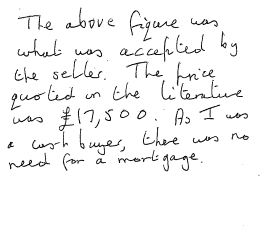 The above figure was
what was accepted by
the seller. The price
quoted on the literature
was £17,500. As I was
a cash buyer, there was no
need for a mortgage.